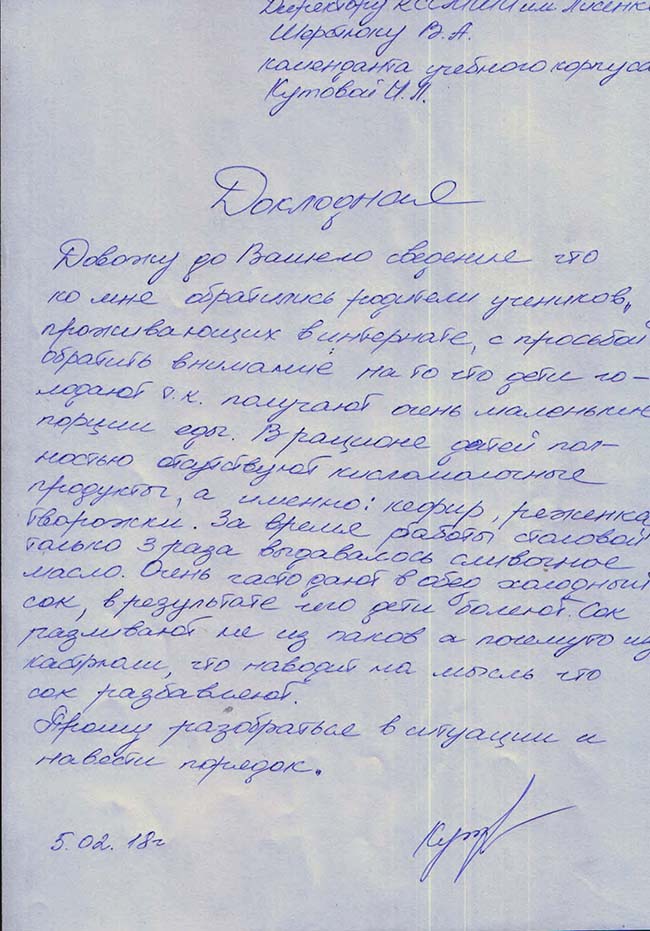 Директору КССМШИ им Лисенк
В.А.
коменданта учебного корпуса
Кутовой И.П.
Докладная
Довожу до Вашего сведение что
ко мне обратились родители учеников,
проживающих в интернате, с просьбой
обратить внимание на то что дети го-
лодают т.к. получают очень маленькие
порции еды. В рационе детей пол-
ностью отсутствуют кисломолочные
продукты, а именно: кефир, реженка,
творожки. За время работы столовой
только 3 раза выдавалось сливочное
масло. Очень часто дают в обед холодный
сок, в результате чего дети болеют. Сок
разливают не из паков а почемуто из
кастрюли, что наводит на мысль что
сок разбавляют.
Прошу разобраться в ситуации и
навести порядок.
5.02.18г